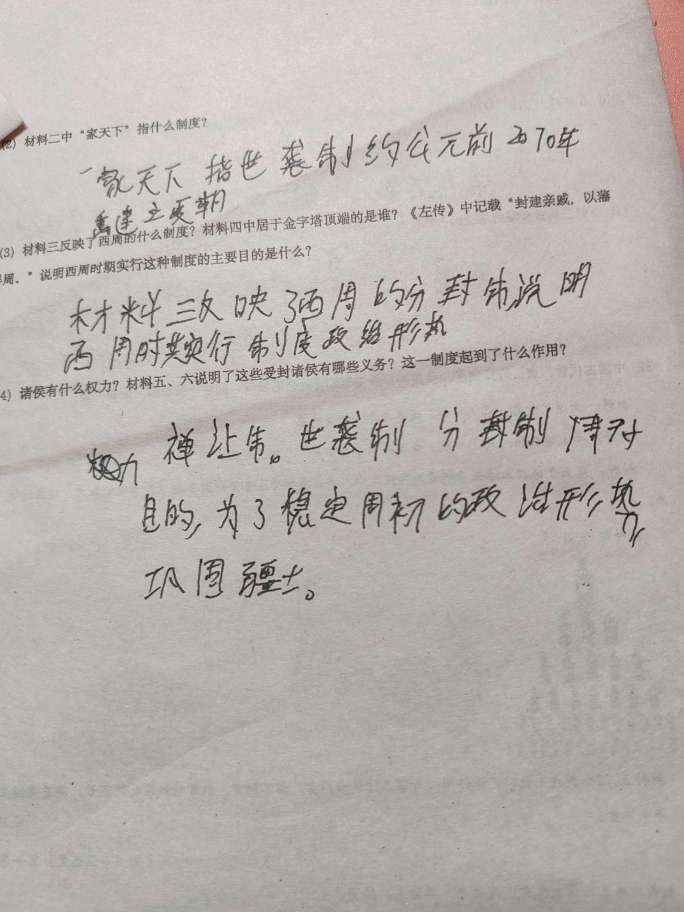 (2) 材料二中“家天下”指什么制度?
家天下 指世袭制 约公元前2070年
禹建立夏朝
(3) 材料三反映了西周的什么制度? 材料四中居于金字塔顶端的是谁? 《左传》中记载“封建亲戚, 以藩
屏周. ”说明西周时期实行这种制度的主要目的是什么?
材料三反映了西周的分封制说明
西周时其实行制度政治形势
4) 诸侯有什么权力? 材料五、六说明了这些受封诸侯有哪些义务? 这一制度起到了什么作用?
权力 禅让制。世袭制 分封制
目的, 为了稳定周初的政治形势
巩固疆土。